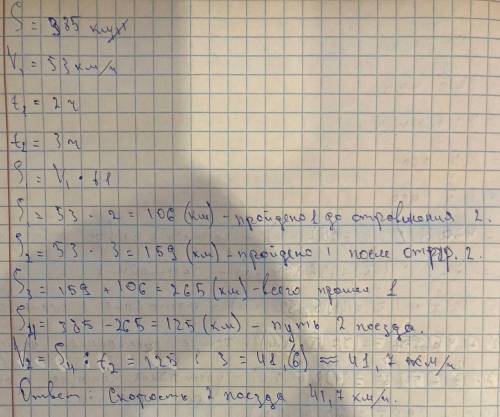 S = 385 км
V₁ = 53 км/ч
t₁ = 2 ч
t₂ = 3 ч
S₁ = V₁ · t1
S₁ = 53 · 2 = 106 (км) - пройдено 1 до отправления 2.
S₂ = 53 · 3 = 159 (км) - пройдено 1 после отпр. 2.
S₃ = 159 + 106 = 265 (км) - всего прошел 1
S₄ = 385 - 265 = 125 (км) - путь 2 поезда.
V₂ = S₄ : t₂ = 125 : 3 = 41,(6) ≈ 41,7 км/ч
Ответ: Скорость 2 поезда 41,7 км/ч.